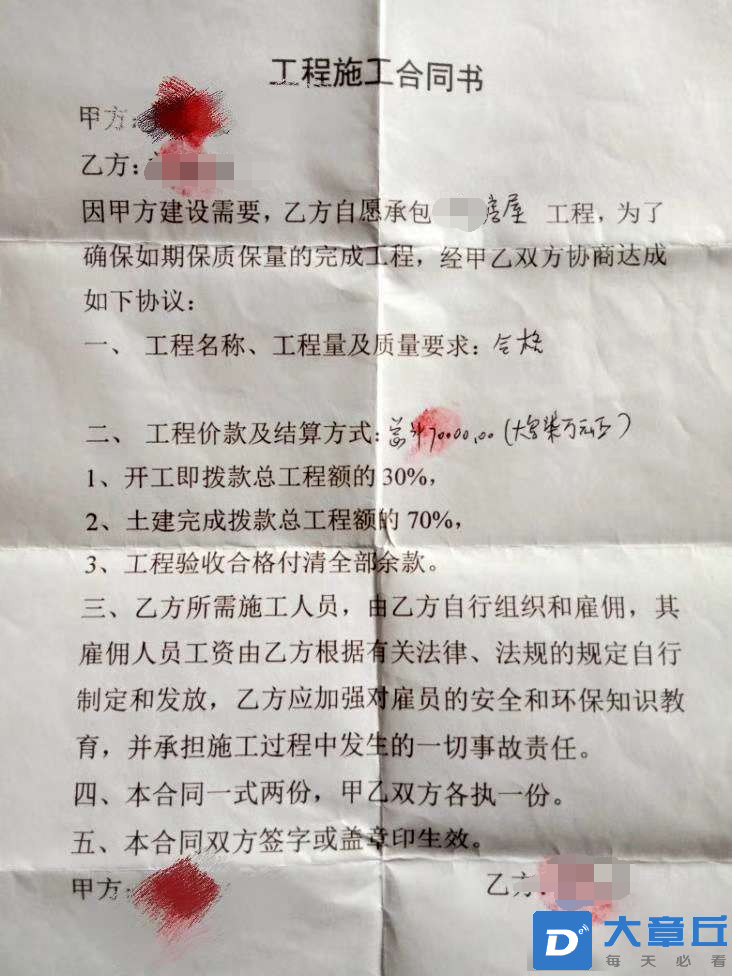 工程施工合同书
甲方:
乙方:
因甲方建设需要,乙方自愿承包 房屋 工程,为了
确保如期保质保量的完成工程,经甲乙双方协商达成
如下协议:
一、 工程名称、工程量及质量要求: 合格
二、 工程价款及结算方式: 总计70000.00(大写柒万元正)
1、开工即拨款总工程额的 30%,
2、土建完成拨款总工程额的 70%,
3、工程验收合格付清全部余款。
三、乙方所需施工人员,由乙方自行组织和雇佣,其
雇佣人员工资由乙方根据有关法律、法规的规定自行
制定和发放,乙方应加强对雇员的安全和环保知识教
育,并承担施工过程中发生的一切事故责任。
四、本合同一式两份,甲乙双方各执一份。
五、本合同双方签字或盖章印生效。
甲方: 乙方:
大章丘
每天必看